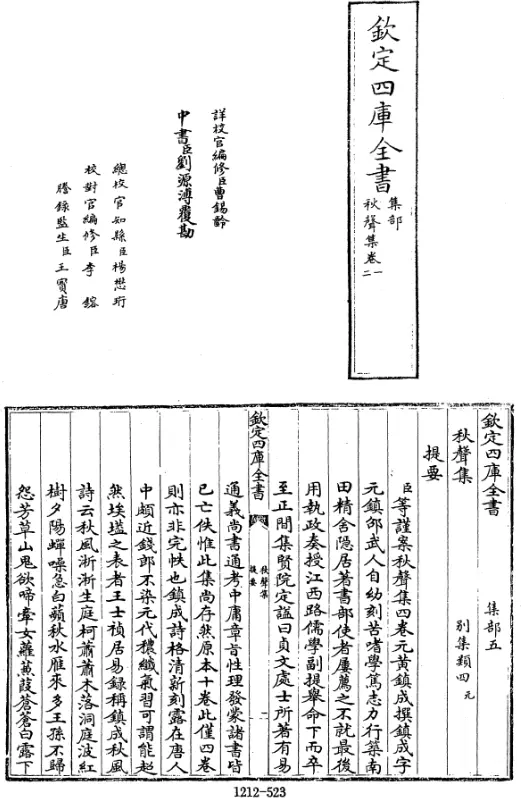 欽定四庫全書
集部
秋聲集卷一
二
詳校官編修臣曹錫齡
中書臣劉源溥覆勘
總校官知縣臣楊懋珩
校對官編修臣李鎔
謄錄監生臣王賓唐
欽定四庫全書 集部五
秋聲集 別集類四元
提要
臣等謹案秋聲集四卷元黃鎮成撰鎮成字
元鎮邵武人自幼刻苦嗜學篤志力行築南
田精舍隱居著書部使者屢薦之不就最後
用執政奏授江西路儒學副提舉命下而卒
至正間集賢院定諡曰貞文處士所著有易
欽定四庫全書
秋聲集
提要
一
通義尚書通考中庸章旨性理發蒙諸書皆
已亡佚惟此集尚存然原本十卷此僅四卷
則亦非完帙也鎮成詩格清新刻露在唐人
中頗近錢郎不染元代穠纖氣習可謂能超
然埃壒之表者王士禎居易録稱鎮成秋風
詩云秋風淅淅生庭柯蕭蕭木落洞庭波紅
樹夕陽蟬噪急白蘋秋水雁來多王孫不歸
怨芳草山鬼欲啼牽女蘿蒹葭蒼蒼白露下
1212-523